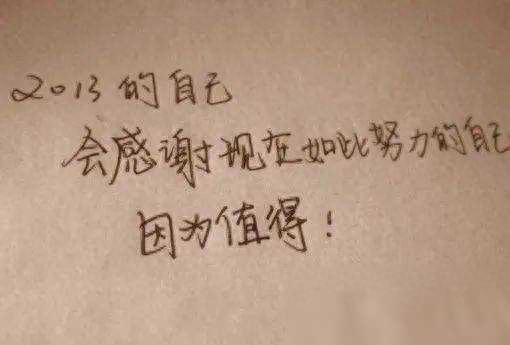 2013的自己
会感谢现在如此努力的自己
因为值得！